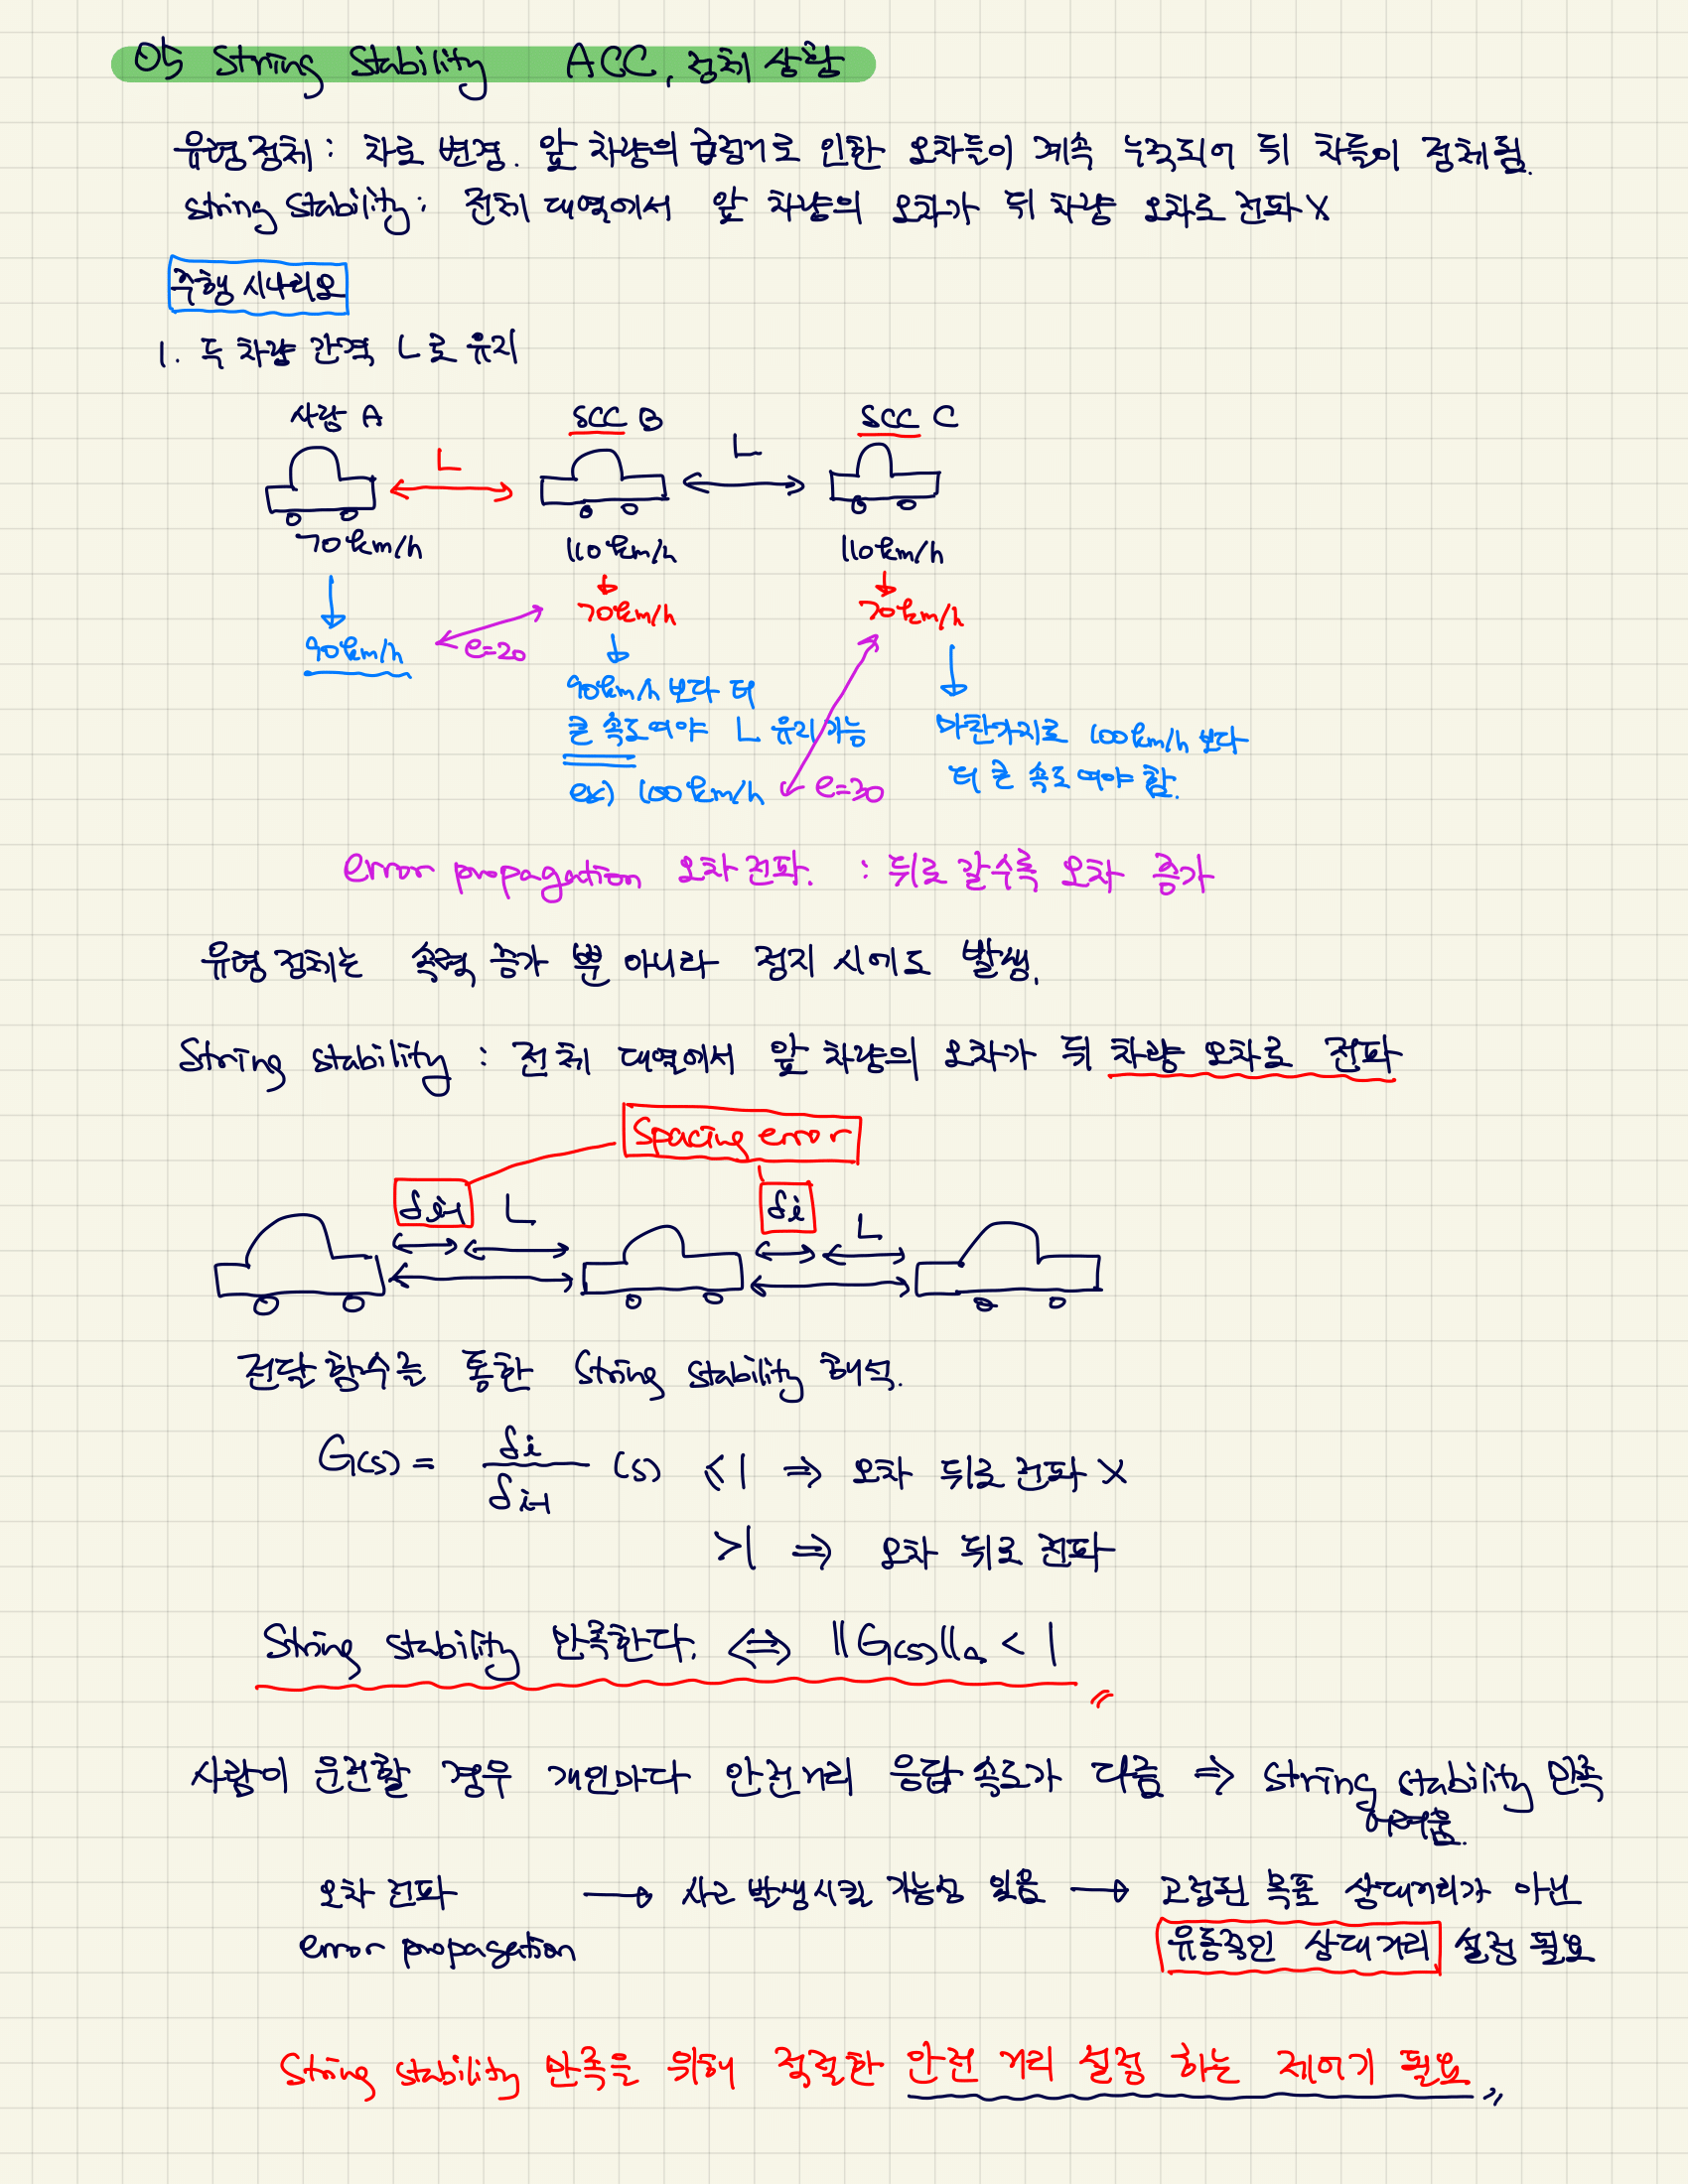 05 String Stability ACC, 정체 상황
유령정체 : 차로 변경. 앞 차량의 급정거로 인한 오차들이 계속 누적되어 뒤 차들이 정체됨.
String Stability : 전체 대열에서 앞 차량의 오차가 뒤 차량 오차로 전파 X
주행 시나리오
1. 두 차량 간격 L로 유지
사람 A SCC B SCC C
L L
70km/h 110km/h 110km/h
70km/h 70km/h
90km/h e=20
90km/h 보다 더
큰 속도여야 L 유지 가능
ex) 100km/h e=30
마찬가지로 100km/h 보다
더 큰 속도여야 함.
error propagation 오차 전파. : 뒤로 갈수록 오차 증가
유령정체는 속력 증가 뿐 아니라 정지 시에도 발생.
String stability : 전체 대열에서 앞 차량의 오차가 뒤 차량 오차로 전파
Spacing error
δi-1 L δi L
전달함수를 통한 String stability 해석.
G(s) = δi/δi-1 (s) < 1 ⇒ 오차 뒤로 전파 X
>1 ⇒ 오차 뒤로 전파
String stability 만족한다. ⇔ ||G(s)||∞ < 1
사람이 운전할 경우 개인마다 안전거리 응답속도가 다름 ⇒ String stability 만족
어려움.
오차 전파 → 사고 발생시킬 가능성 있음 → 고정된 목표 상대거리가 아닌
error propagation 유동적인 상대거리 설정 필요
String stability 만족을 위해 적절한 안전 거리 설정 하는 제어기 필요